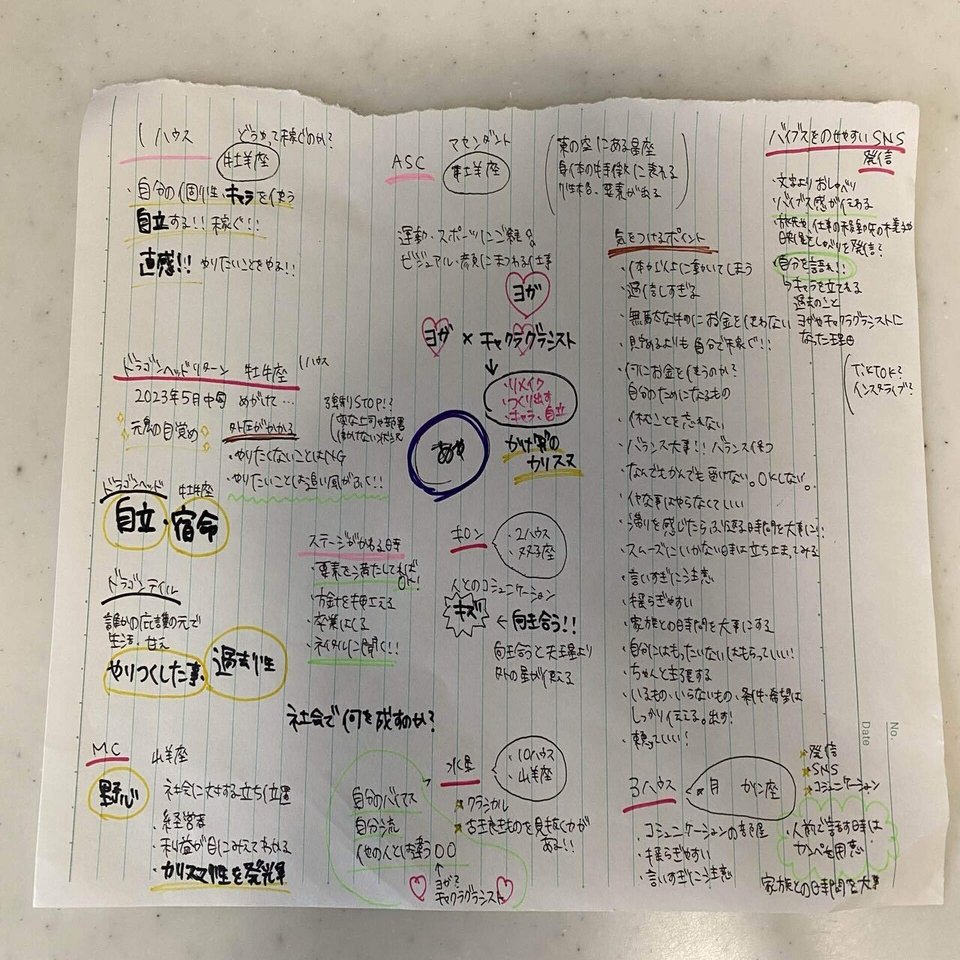 1ハウス
どうやって稼ぐのか?
牡羊座
・自分の個性、キャラを使う
自立する!! 稼ぐ!!
直感!! やりたいことをやる!!
ASC
アセンダント
牡羊座
東の空にある星座
身体の特徴に表れる
性格、要素が出る
運動・スポーツにご縁
ビジュアル・顔にまつわる仕事
ヨガ
ヨガ × チャクラグラシスト
↓
・リメイク
・つくり出す
・キャラ、自立
カリスマ
あや
ドラゴンヘッドリターン 牡牛座 1ハウス
2023年5月中旬 めがけて…
元の目覚め
・やりたくないことはNG
・やりたいことは追い風がふく!!
強制STOP!?
変な上司や部署
働けない状況
ドラゴンヘッド 牡牛座
自立・宿命
ドラゴンテイル
誰かの庇護の元で
生活、甘え
やりつくした事、過去性
ステージがかわる時
・要素を満たしてればOK!
・方針を押さえる
・卒業はくる
・ネイタルに聞く!!
キロン
・2ハウス
・双子座
人とのコミュニケーション
キズ ← 向き合う!!
向き合うと天王星より
外の星が使える
社会で何を成すのか?
MC 山羊座
野心
・社会に対する立ち位置
・経営者
・利益が目にみえてわかる
・カリスマ性を発揮
自分のバイアス
自分流
他の人とは違う○○
↑
ヨガ?
チャクラグラシスト
水星
・10ハウス
・山羊座
クラシカル
古き良きものを見抜く力が
ある!!
気をつけるポイント
・体が先に動いてしまう
・過信しすぎる
・無駄な物にお金を使わない
・見定めるよりも自分で稼ぐ!!
・何にお金を使うのか?
自分のためになるもの
・休むことを忘れない
・バランス大事!! バランス保つ
・なんでもかんでも受けない。OKしない。
・イヤな事はやらなくていい
・滞りを感じたらふり返る時間を大事に!
・スムーズにいかない時は立ち止まってみる
・言いすぎに注意
・揺らぎやすい
・家族との時間を大事にする
・自分にはもったいないはもらっていい!
・ちゃんと主張する
・いるもの・いらないもの・条件・希望は
しっかり伝える。出す!
・頼っていい!
3ハウス
月 かに座
・コミュニケーションの部屋
・揺らぎやすい
・言いすぎに注意
バイブスをのせやすいSNS
発信
・文字よりおしゃべり
バイブス感が伝わる
・自分を語れ!!
↳キャラを立てれる
過去のこと
ヨガやチャクラグラシストに
なった理由
TikTok?
インスタライブ?
No.
Date
発信
SNS
コミュニケーション
・人前で話す時は
カンペを用意
家族との時間を大事